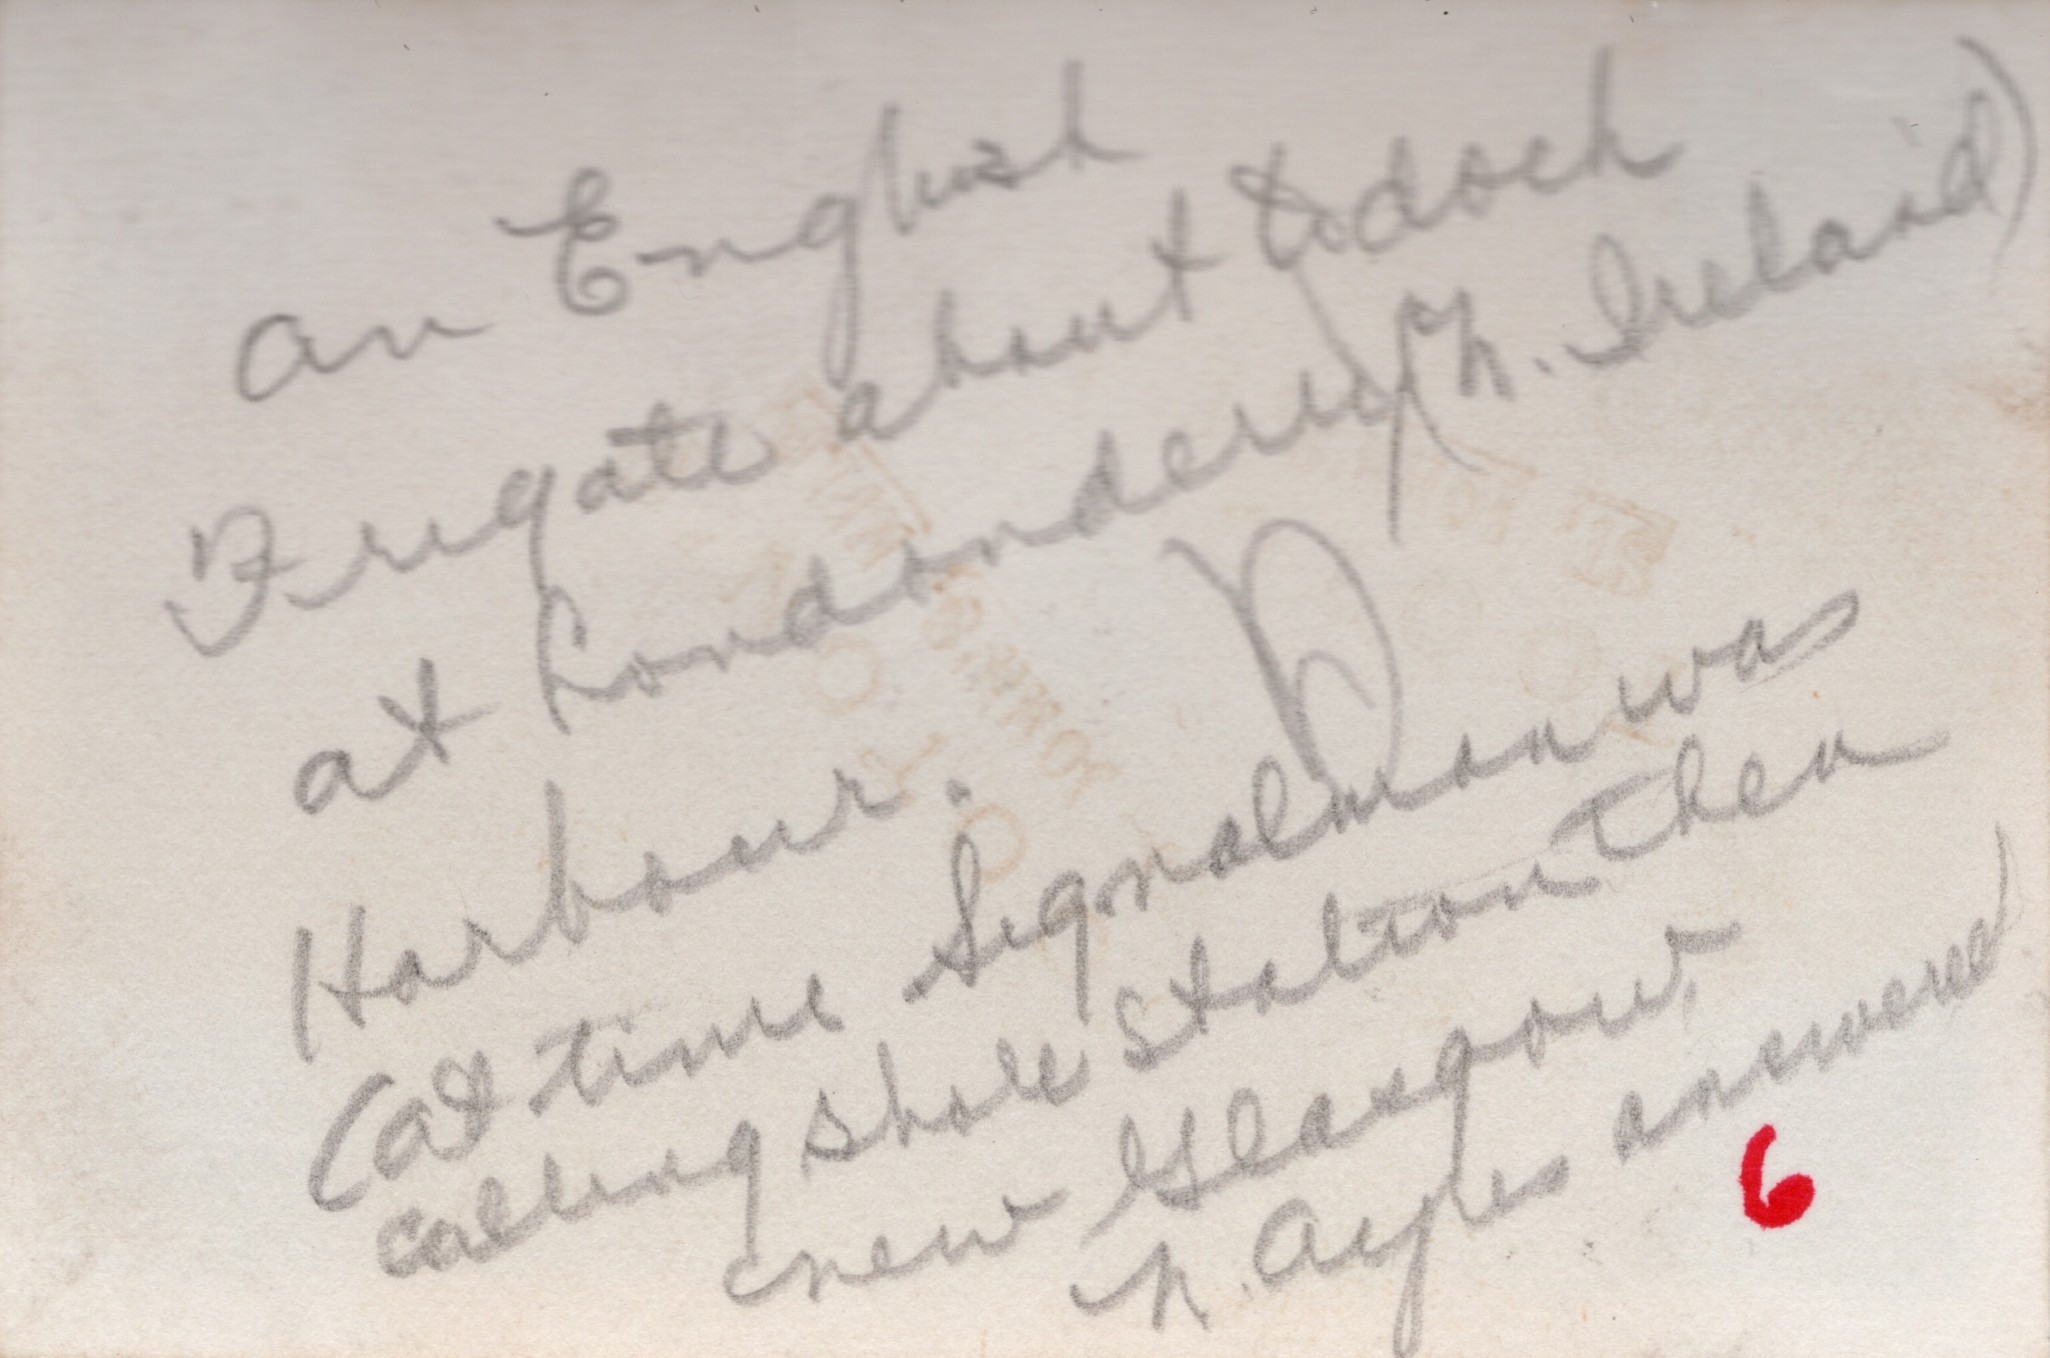 An English
Frigate about to dock
at Londonderry (N. Ireland)
Harbour.
(at time Signalman was
calling shore station then
new Glasgow
N. Ayles answered
6